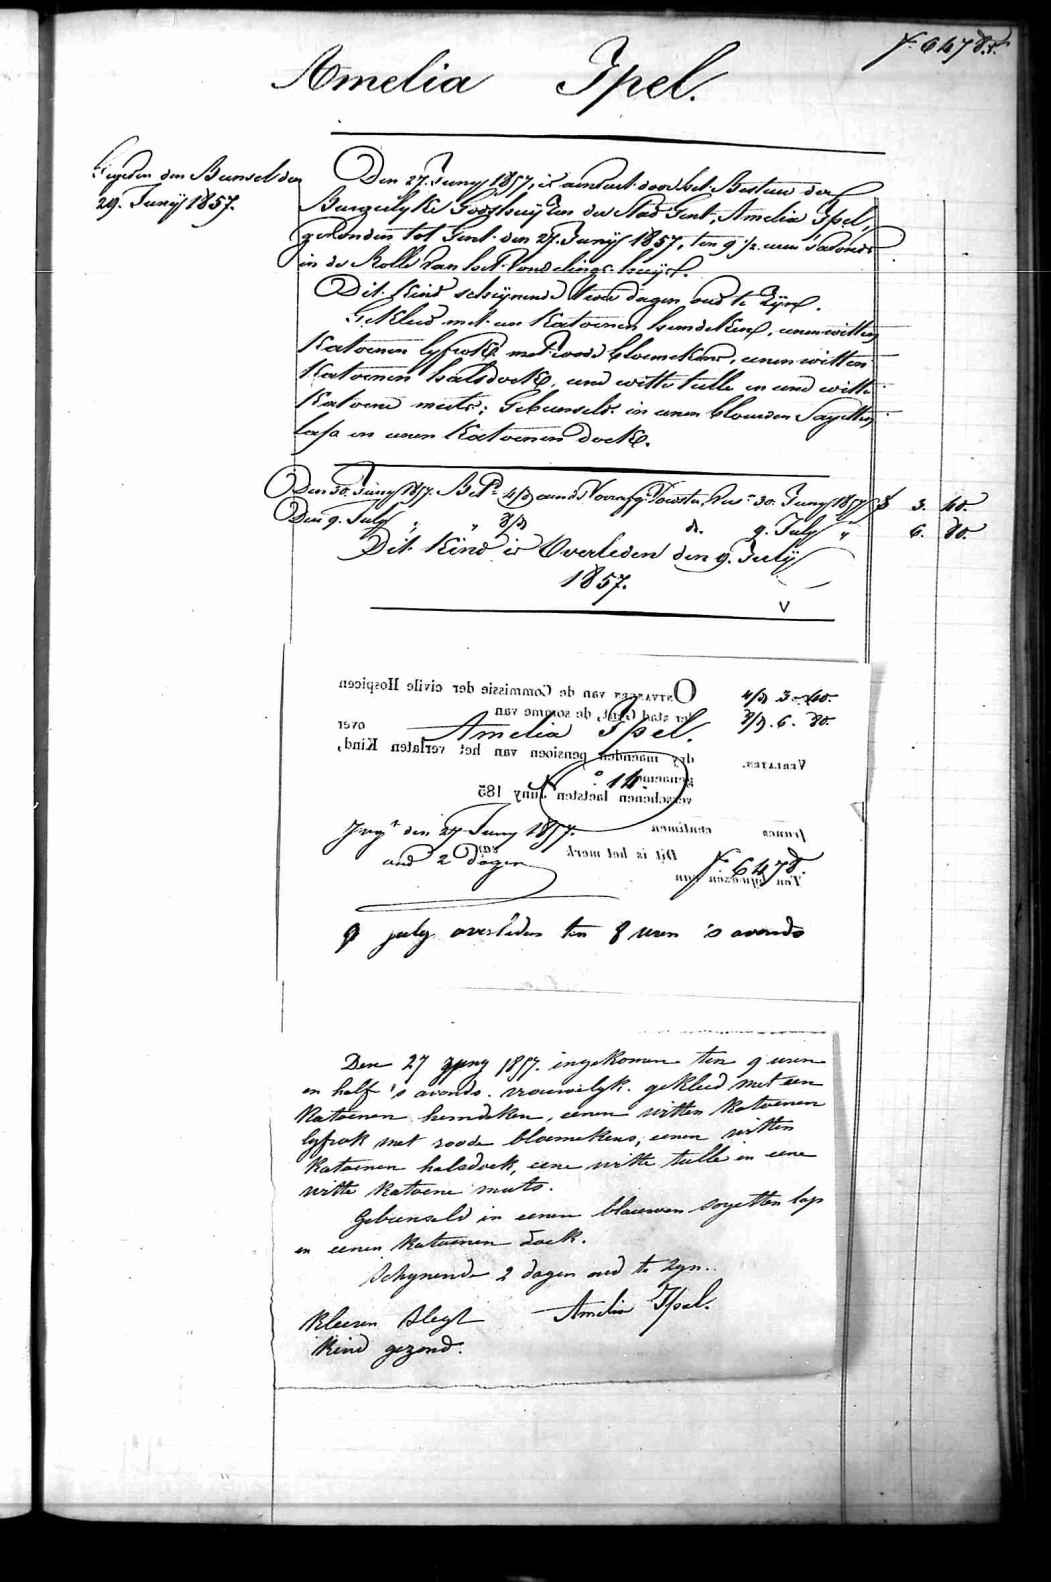 F. 6478.
Amelia Ipel.
Gegeven den Bunsel den
29. Junij 1857.
Den 27. Juny 1857, is aenvaert door het Bestuer der
Burgerlyke Godshuyzen der Stad Gent, Amelia Ipel,
gevonden tot Gent den 27. Junij 1857, ten 9 ½ uren 's avonds
in de Rolle van het Vondelings-huys.
Dit Kind schijnende twee dagen oud te Zijn.
Gekleed met een Katoenen hemdeken, eenen witten
Katoenen lyfrok met roode bloemekens, eenen witten
Katoenen halsdoek, eene witte tulle en eene witte
Katoene muts; Gebunseld in eenen blauwen Sayetten
en eenen Katoenen doek.
Den 30. Juny 1857. 4/d 30. Juny 1857 f 3. 40.
Den 9. July " " 8/d d. 9. July " 6. 80.
Dit Kind is Overleden den 9. July
1857.
V
Ontvangen van de Commissie der civile Hospicen
4/d 3-40.
der stad Gent, de somme van
8/d. 6. 80.
Amelia Ipel.
over
dry maenden pensioen van het verlaten Kind,
Verlaten.
genaemd
N° 14.
verschenen laetsten Juny 185
francs centimen
den 27 Juny 1857.
Dit is het merk van
oud 2 dagen
F. 6478.
Ten bywezen van
9 july overleden ten 8 uren 's avonds
Den 27 juny 1857. ingekomen ten 9 uren
en half 's avonds. vrouwelyk. gekleed met een
Katoenen hemdeken, eenen witten Katoenen
lyfrok met roode bloemekens, eenen witten
Katoenen halsdoek, eene witte tulle en eene
witte Katoene muts.
Gebunseld in eenen blauwen sayetten lap
en eenen Katoenen doek.
Schynende 2 dagen oud te zyn.
Kleeren slegt Amelia Ipel.
Kind gezond.